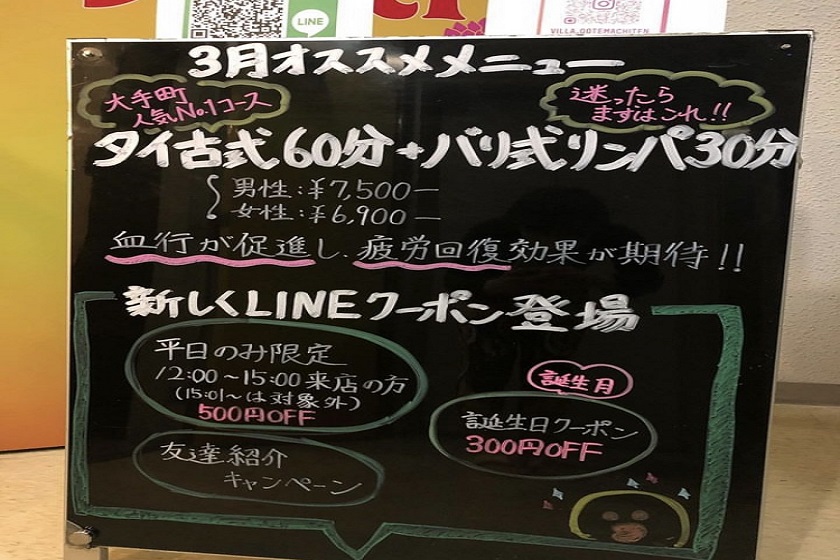 LINE
VILLA.OOTEMACHITEN
3月オススメメニュー
大手町
人気No.1コース
迷ったら
まずはこれ!!
タイ古式60分+バリ式リンパ30分
男性:¥7,500ー
女性:¥6,900ー
血行が促進し、疲労回復効果が期待!!
新しくLINEクーポン登場
平日のみ限定
12:00~15:00来店の方
(15:01~は対象外)
500円OFF
誕生月
誕生日クーポン
300円OFF
友達紹介
キャンペーン